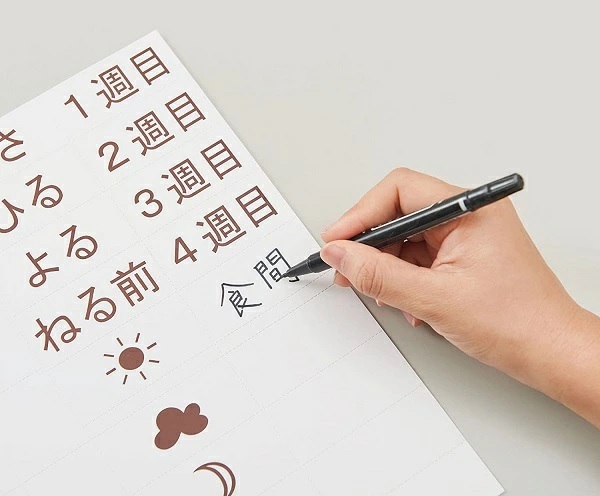 さ 1週目
ひる 2週目
よる 3週目
ねる前 4週目
食間